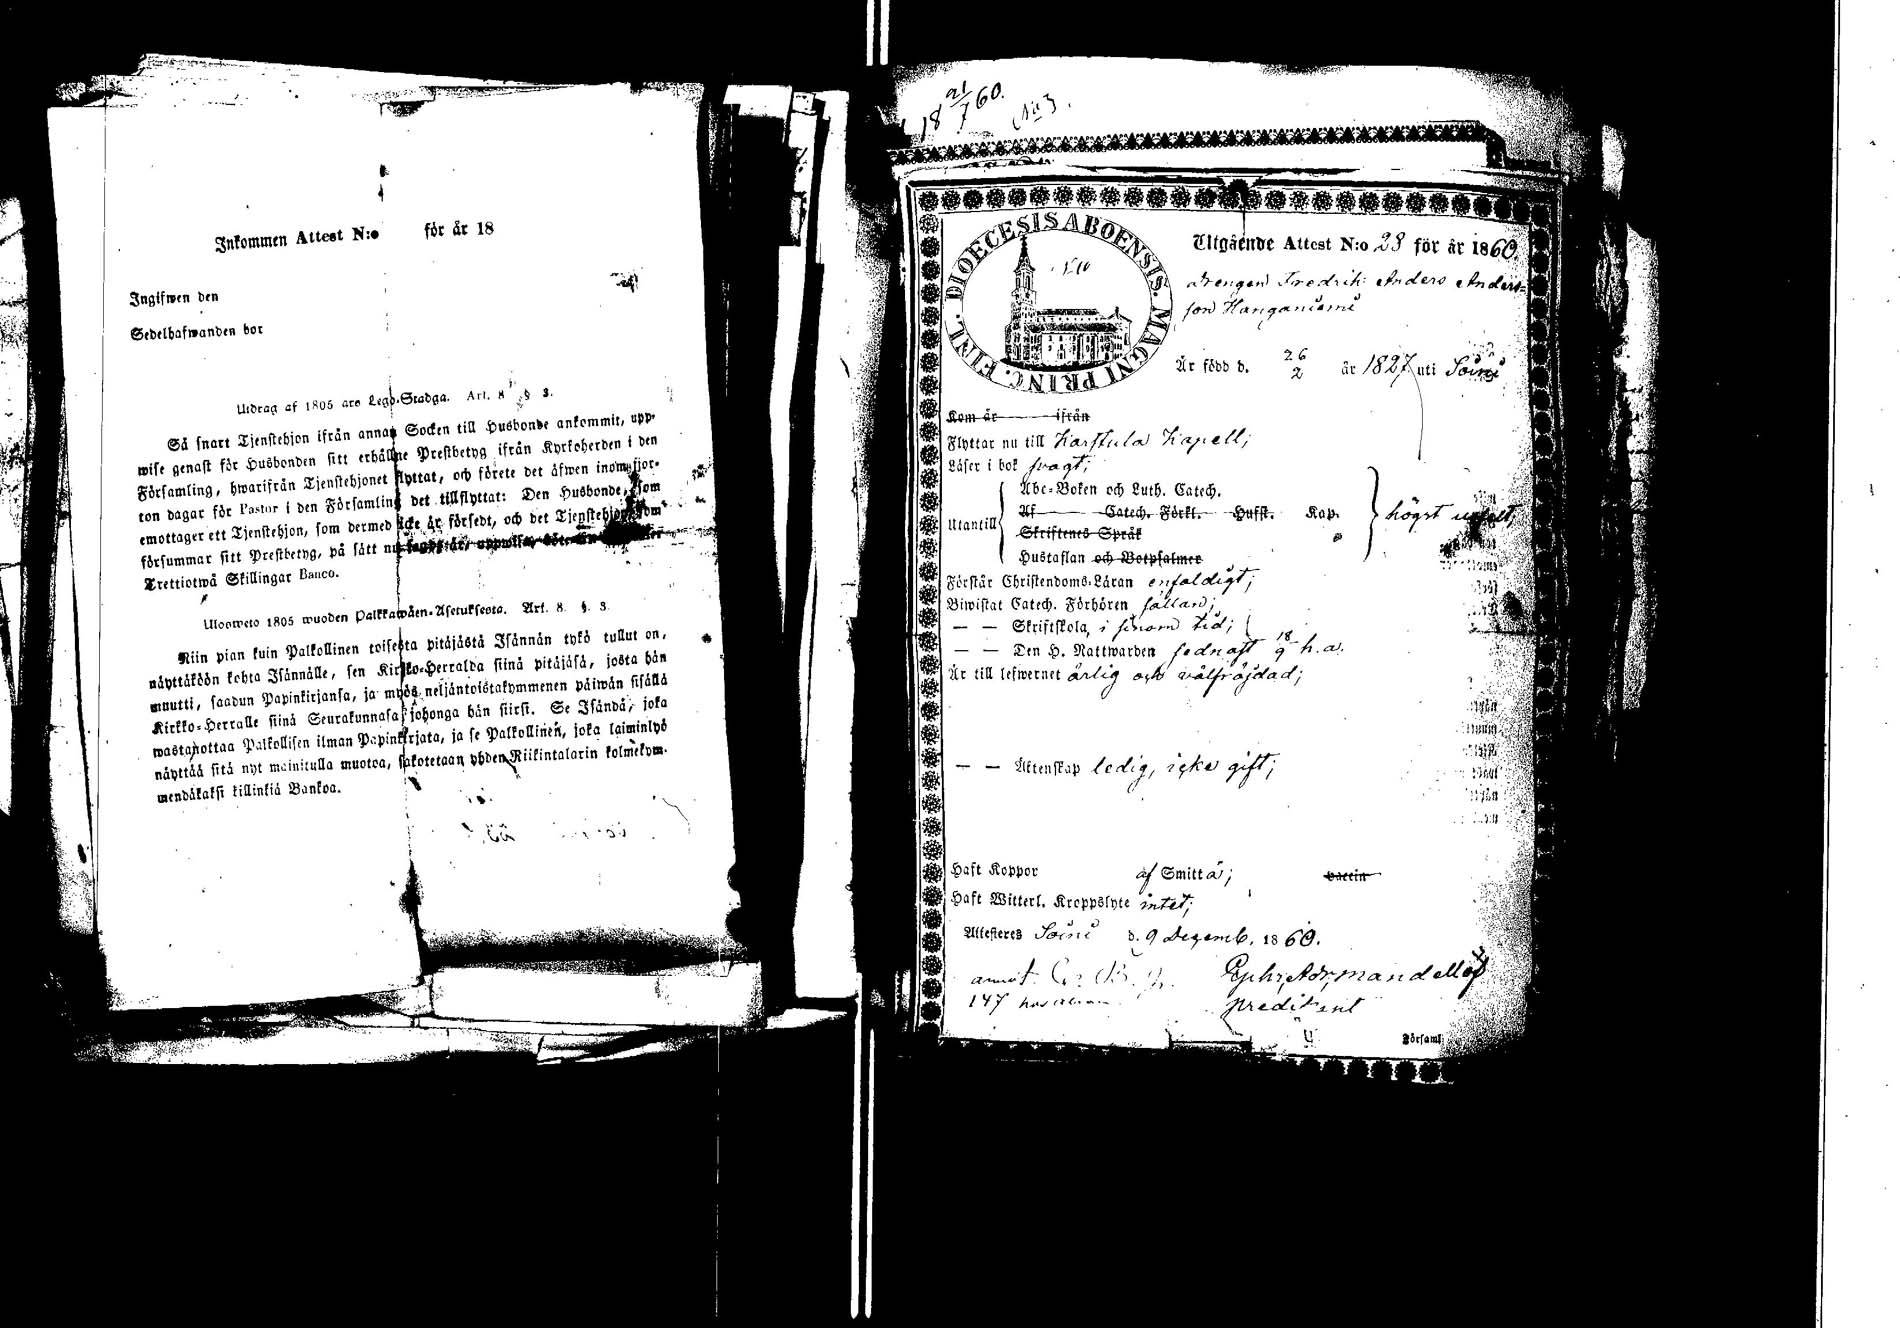 Inkommen Attest N:o för år 18
Ingifwen den
Sedelhafwanden bor
Utdrag af 1805 års Lego-Stadga. Art. 8 § 3.
Så snart Tjenstehjon ifrån annan Socken till Husbonde ankommit, upp-
wise genast för Husbonden sitt erhållne Prestbetyg ifrån Kyrkoherden i den
Församling, hwarifrån Tjenstehjonet flyttat, och förete det äfwen inom fjor-
ton dagar för Pastor i den Församling det tillflyttat: Den Husbonde, som
emottager ett Tjenstehjon, som dermed icke är försedt, och det Tjenstehjon, som
försummar sitt Prestbetyg, på sätt nu sagdt är, uppwisa, böte
Trettiotwå Skillingar Banco.
Ulosweto 1805 wuoden Palkkawäen-Asetuksesta. Art. 8. §. 3.
Niin pian kuin Palkollinen toisesta pitäjästä Isännän tykö tullut on,
näyttäköön kohta Isännälle, sen Kirkko-Herralda siinä pitäjäsä, josta hän
muutti, saadun Papinkirjansa, ja myös neljäntoistakymmenen päiwän sisällä
Kirkko-Herralle siinä Seurakunnasa johonga hän siirsi. Se Isändä, joka
wastanottaa Palkollisen ilman Papinkirjata, ja se Palkollinen, joka laiminlyö
näyttää sitä nyt mainitulla muotoa, sakotetaan yhden Riikintalarin kolmekym-
mendäkaksi killinkiä Bankoa.
18 21/7 60.
No 3.
DIOECESIS ABOENSIS. MAGNI PRINC. FINL.
Utgående Attest N:o 23 för år 1860
Drengen Fredrik Anders Anders-
son Kanganiemi
Är född d. 26/2 år 1827 uti Soini
Kom år ifrån
Flyttar nu till Karstula Kapell;
Läser i bok svagt;
Utantill
Abc-Boken och Luth. Catech.
Af Catech. Förkl. Husst. Kap.
Skriftenes Språk
Hustaflan och Botpsalmer
högst uselt,
Förstår Christendoms-Läran enfaldigt;
Biwistat Catech. Förhören sällan;
— — Skriftskola, i sinom tid;
— — Den H. Nattwarden sednast 18/9 h. a.
Är till lefwernet ärlig och välfräjdad;
— — Äktenskap ledig, icke gift;
Haft Koppor af Smitta; vaccin
Haft Witterl. Kroppslyte intet;
Attesteras Soini d. 9 Dezemb. 1860.
annot.
147
predikant
Församl.